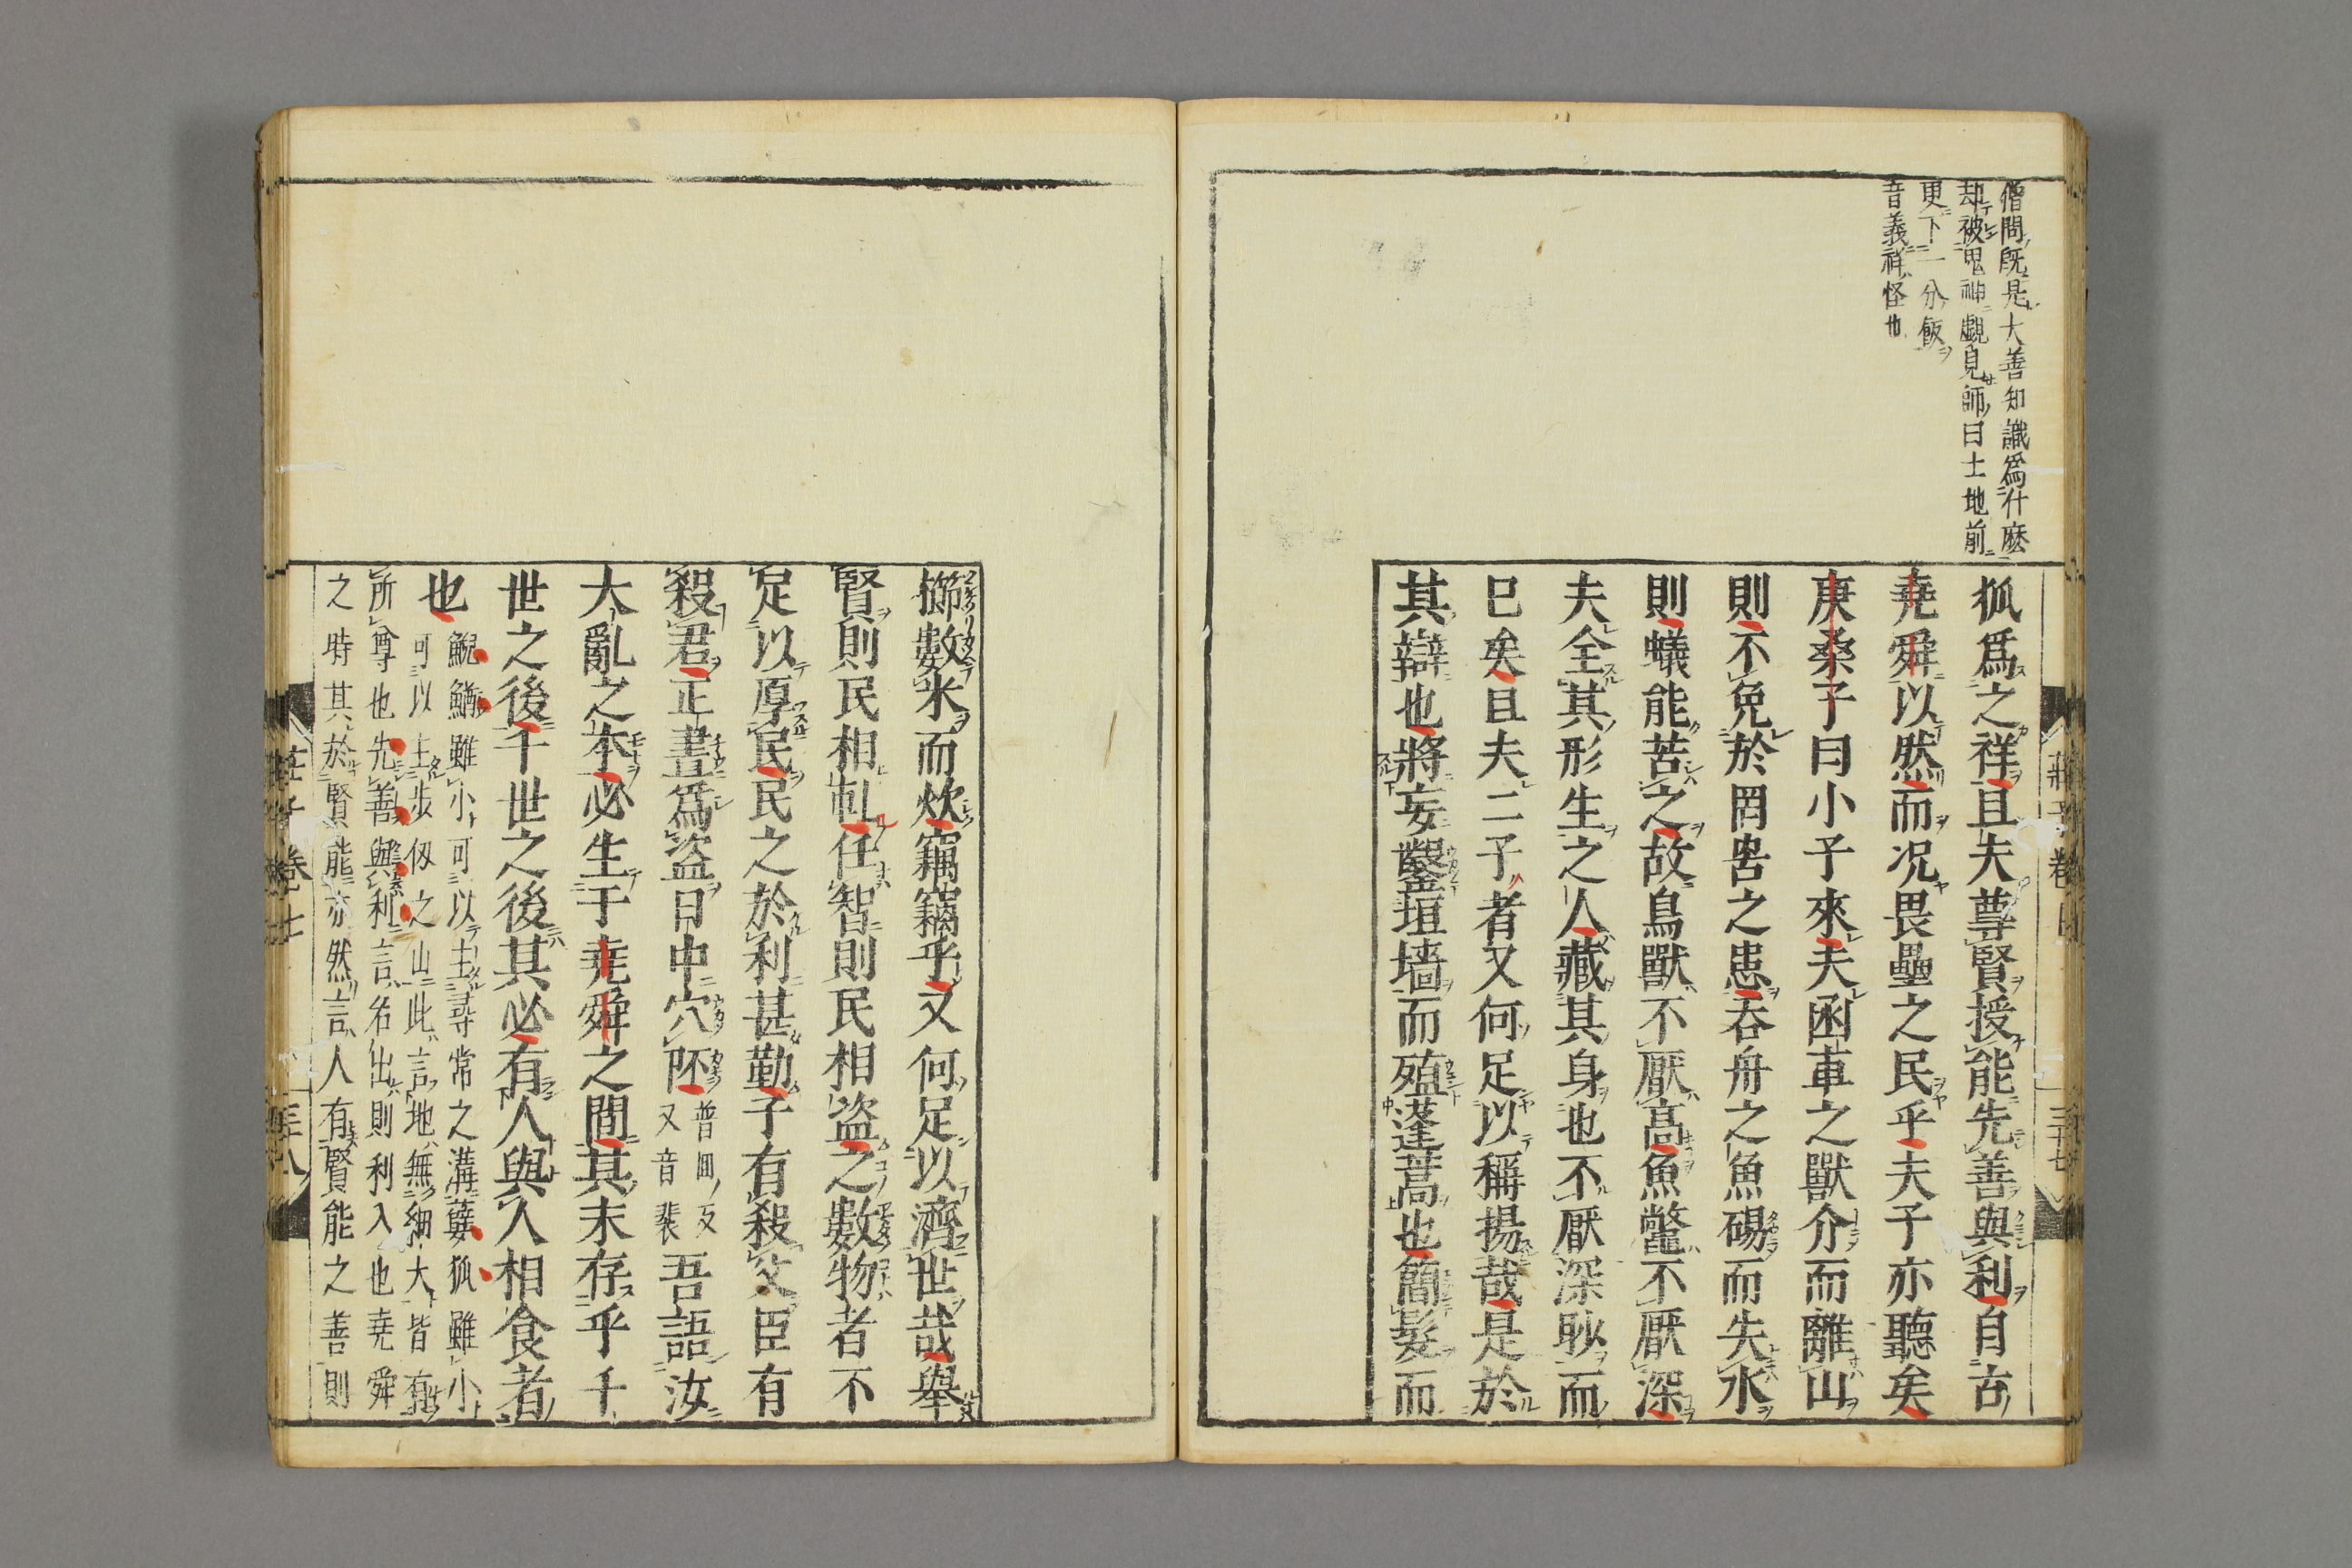 僧問既是大善知識爲什麽
却被鬼神覷見師曰土地前
更下一分飯
音義祥怪也
狐爲之祥且夫尊賢授能先善與利自古
堯舜以然而况畏壘之民乎夫子亦聽矣
庚桑子曰小子來夫函車之獸介而離山
則不免於罔罟之患吞舟之魚碭而失水
則蟻能苦之故鳥獸不厭高魚鼈不厭深
夫全其形生之人藏其身也不厭深眇而
巳矣且夫二子者又何足以稱揚哉是於
其辯也將妄鑿垣墻而殖蓬蒿也簡髮而
莊子卷
三十七
櫛數米而炊竊竊乎又何足以濟世哉舉
賢則民相軋任智則民相盗之數物者不
足以厚民民之於利甚勤子有殺父臣有
殺君正晝爲盗日中穴阫普回反又音裴吾語汝
大亂之本必生于堯舜之間其末存乎千
世之後千世之後其必有人與人相食者
也鯢鰌雖小可以主尋常之溝蘖狐雖小
可以主步仭之山此言地無細大皆有
所尊也先善與利言名出則利入也堯舜
之時其於賢能亦然言人有賢能之善則
莊子卷七
三十八